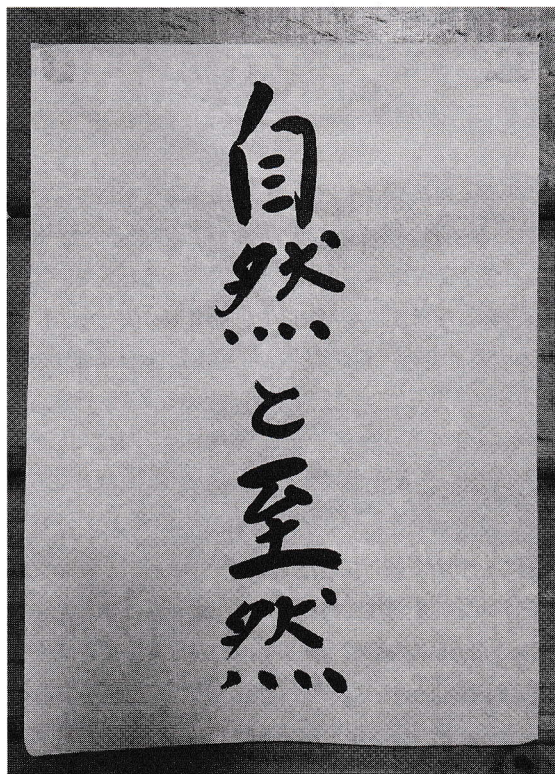 自然と至然